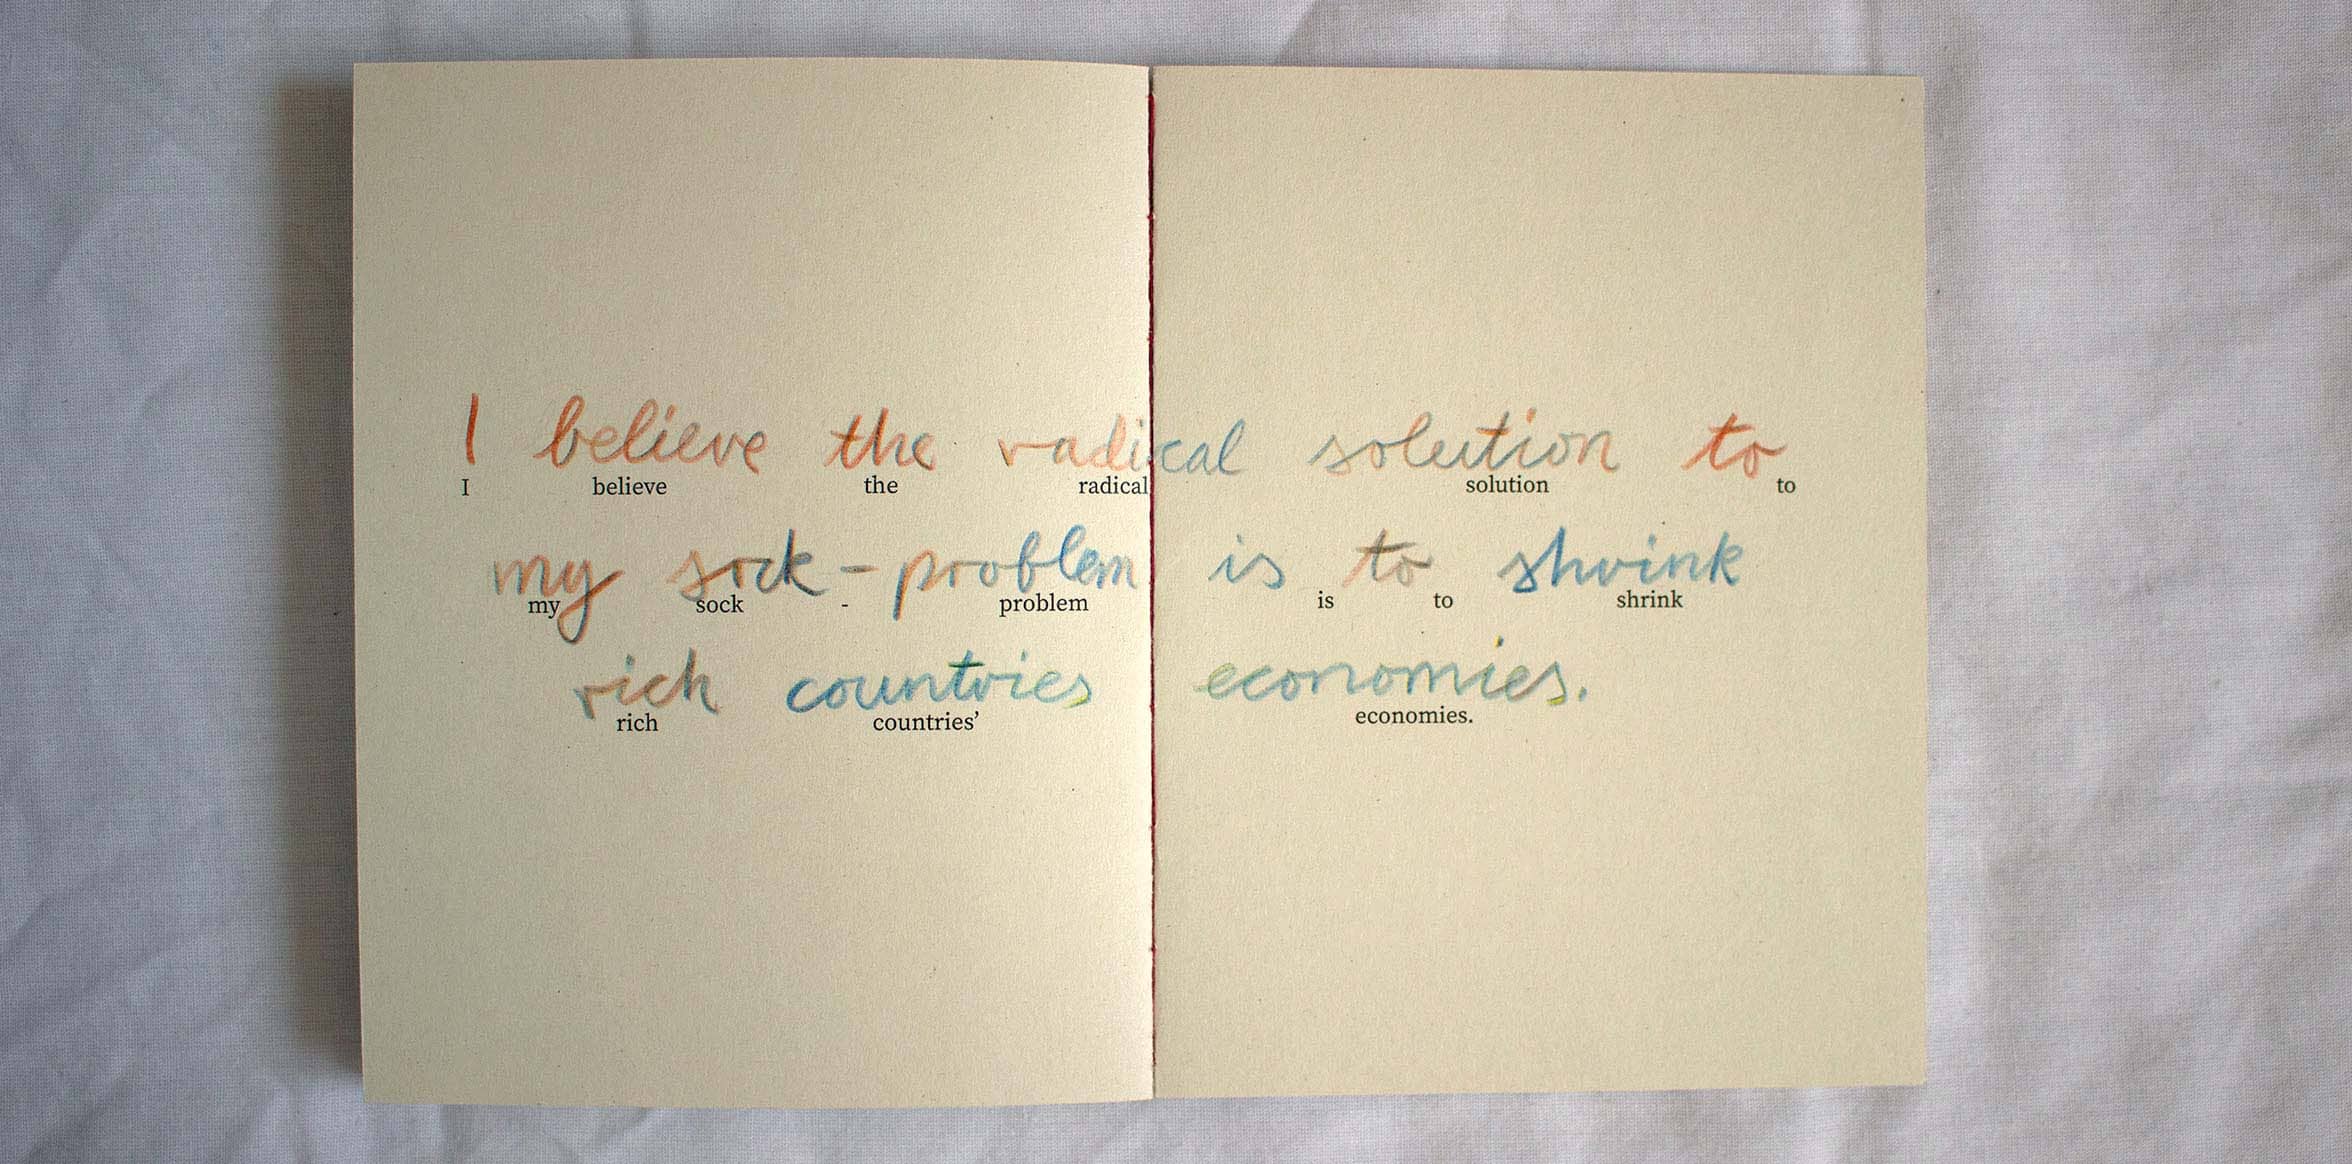 I believe the radical solution to
I believe the radical solution to
my sock-problem is to shrink
my sock - problem is to shrink
rich countries economies.
rich countries' economies.